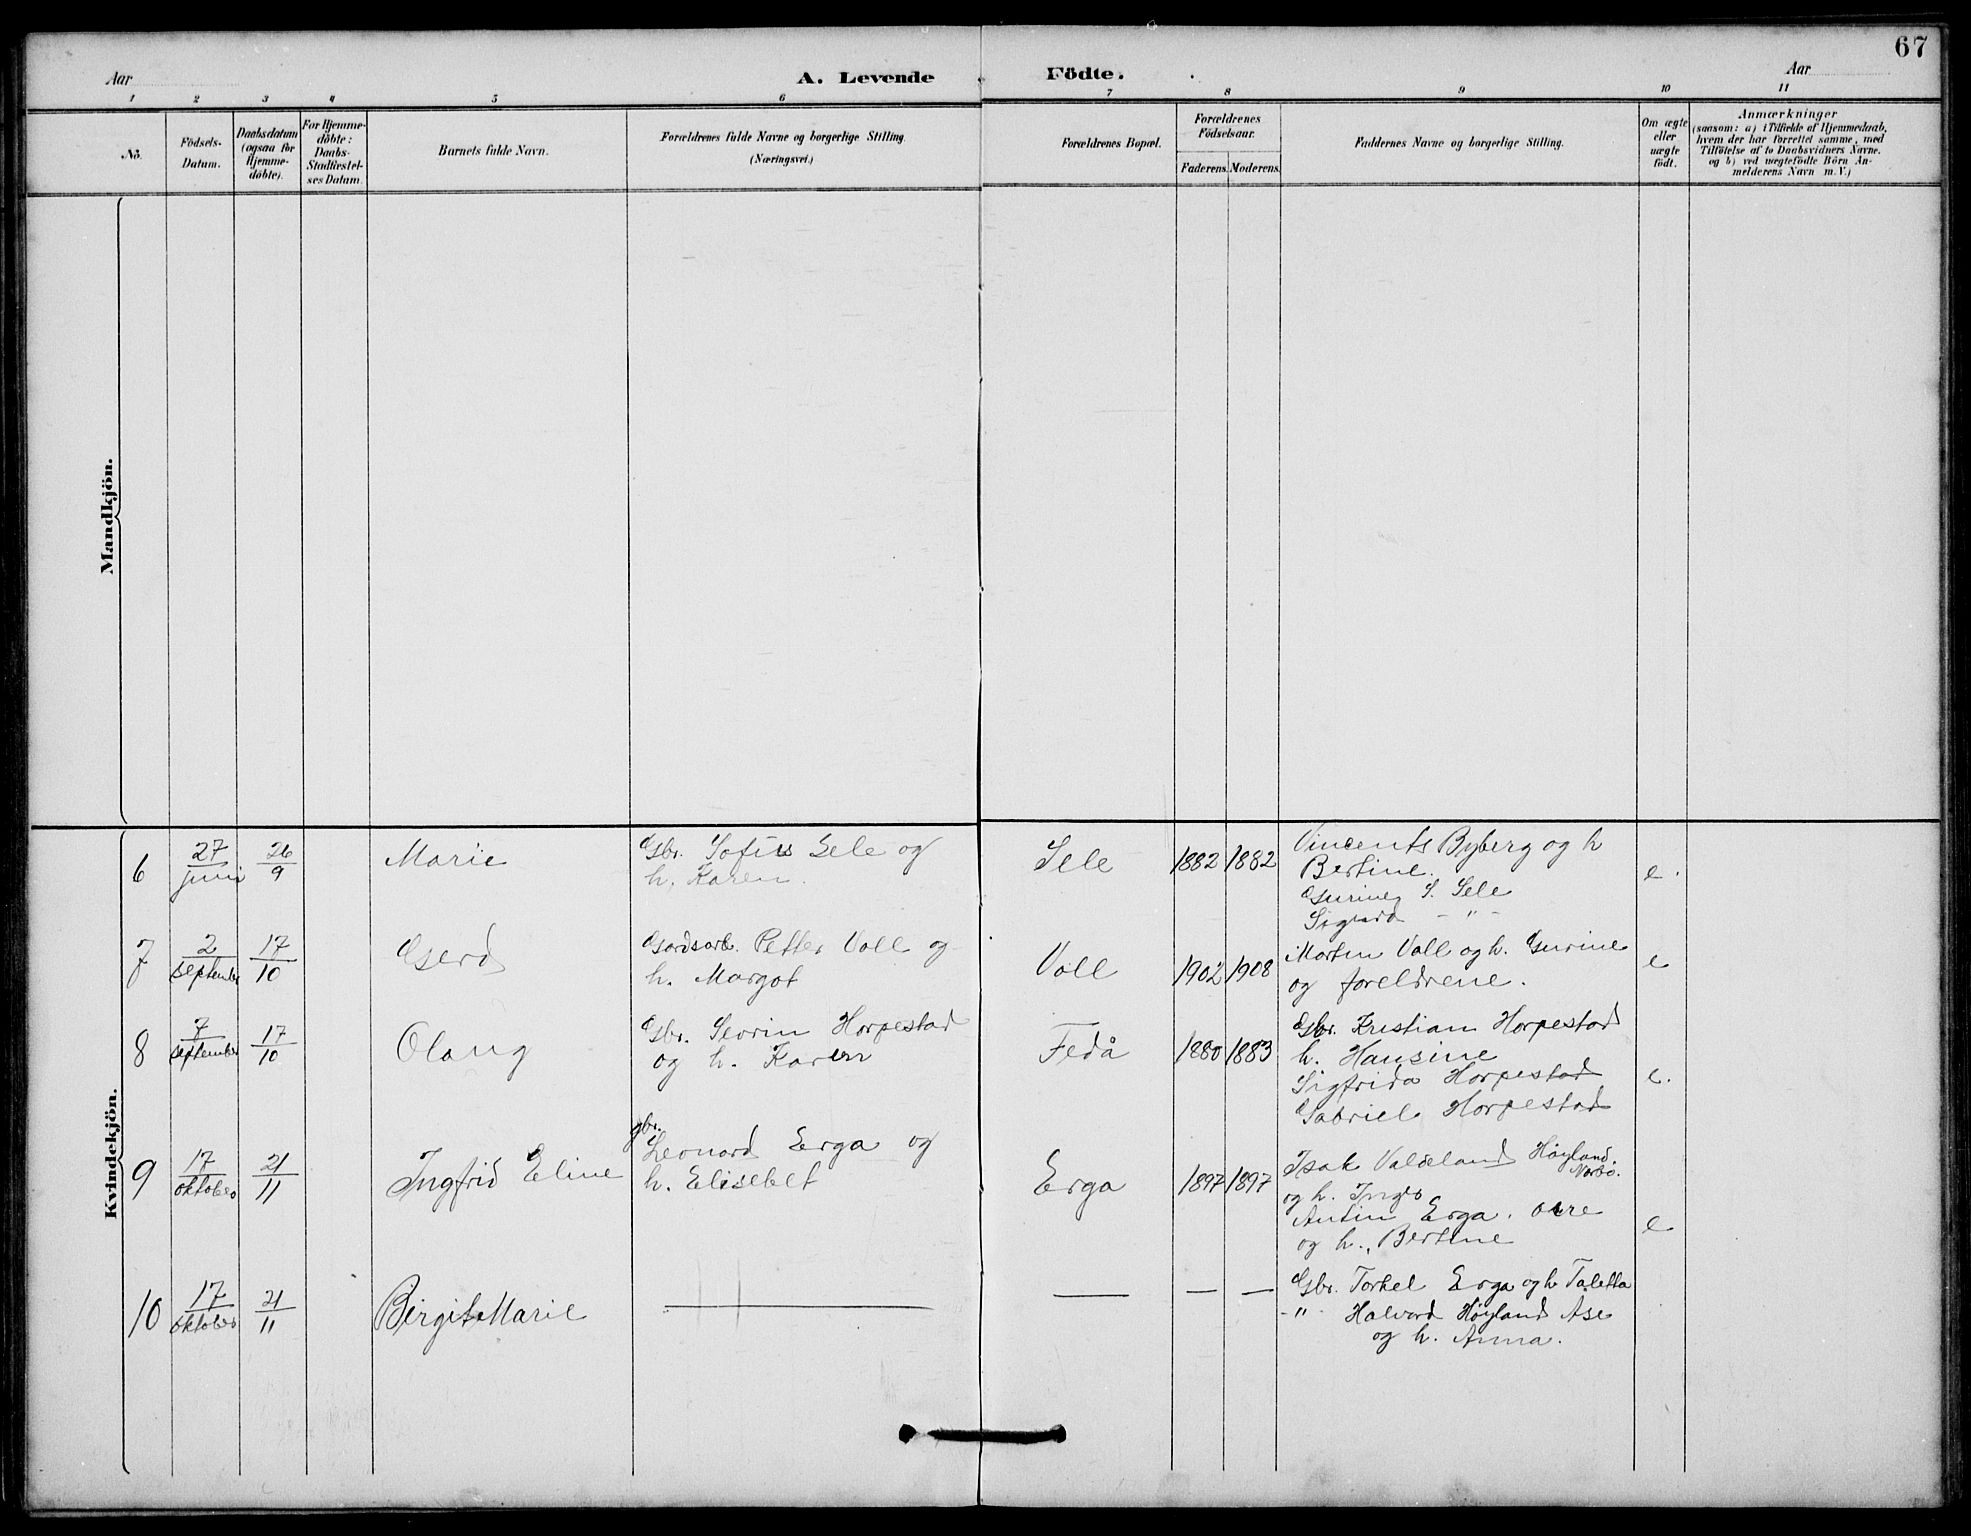 67
Aar
A. Levende Födte.
Aar
1 2 3 4 5 6 7 8 9 10 11
No.
Födsels-
Datum.
Daabsdatum
(ogsaa for
Hjemme-
döbte).
For Hjemme-
döbte:
Daabs-
Stadfæstel-
ses Datum.
Barnets fulde Navn.
Forældrenes fulde Navne og borgerlige Stilling.
(Næringsvei.)
Forældrenes Bopæl.
Forældrenes
Födselsaar.
Faderens. Moderens.
Faddernes Navne og borgerlige Stilling.
Om ægte
eller
uægte
födt.
Anmærkninger
(saasom: a) i Tilfælde af Hjemmedaab,
hvem der har forrettet samme, med
Tilföielse af to Daabsvidners Navne.
og b) ved uægtefödte Börn An-
melderens Navn m.V.)
Mandkjön.
Kvindekjön.
6 27 juni 26/9 Marie
Gbr. Sofus Sele og
h. Karen.
Sele 1882 1882
Vincents Byberg og h
Bertine.
S. Sele
Sigurd - " -
e.
7 2 september 17/10 Gerd
Gardsarb. Petter Voll og
h. Margot
Voll 1902 1908
Morten Voll og h. Gurine
og foreldrene.
e
8 7 september 17/10 Olaug
Gbr. Sevrin Horpestad
og h. Karen
Fedå 1880 1883
Gbr. Kristian Horpestad
h. Hansine
Sigfrida Horpestad
Gabriel Horpestad
e.
9 17 oktober 21/11 Ingfrid Eline
gbr.
Leonard Erga og
h. Elisebet
Erga 1897 1897
Isak Valdeland Høyland.
og h. Inger
Antin Erga. Orre
og h. Bertine
e
10 17 oktober 21/11 Birgit Marie
— — — —
Gbr. Torkel Erga og h Taletta
- " - Halvard Høyland Ase
og h. Anna.